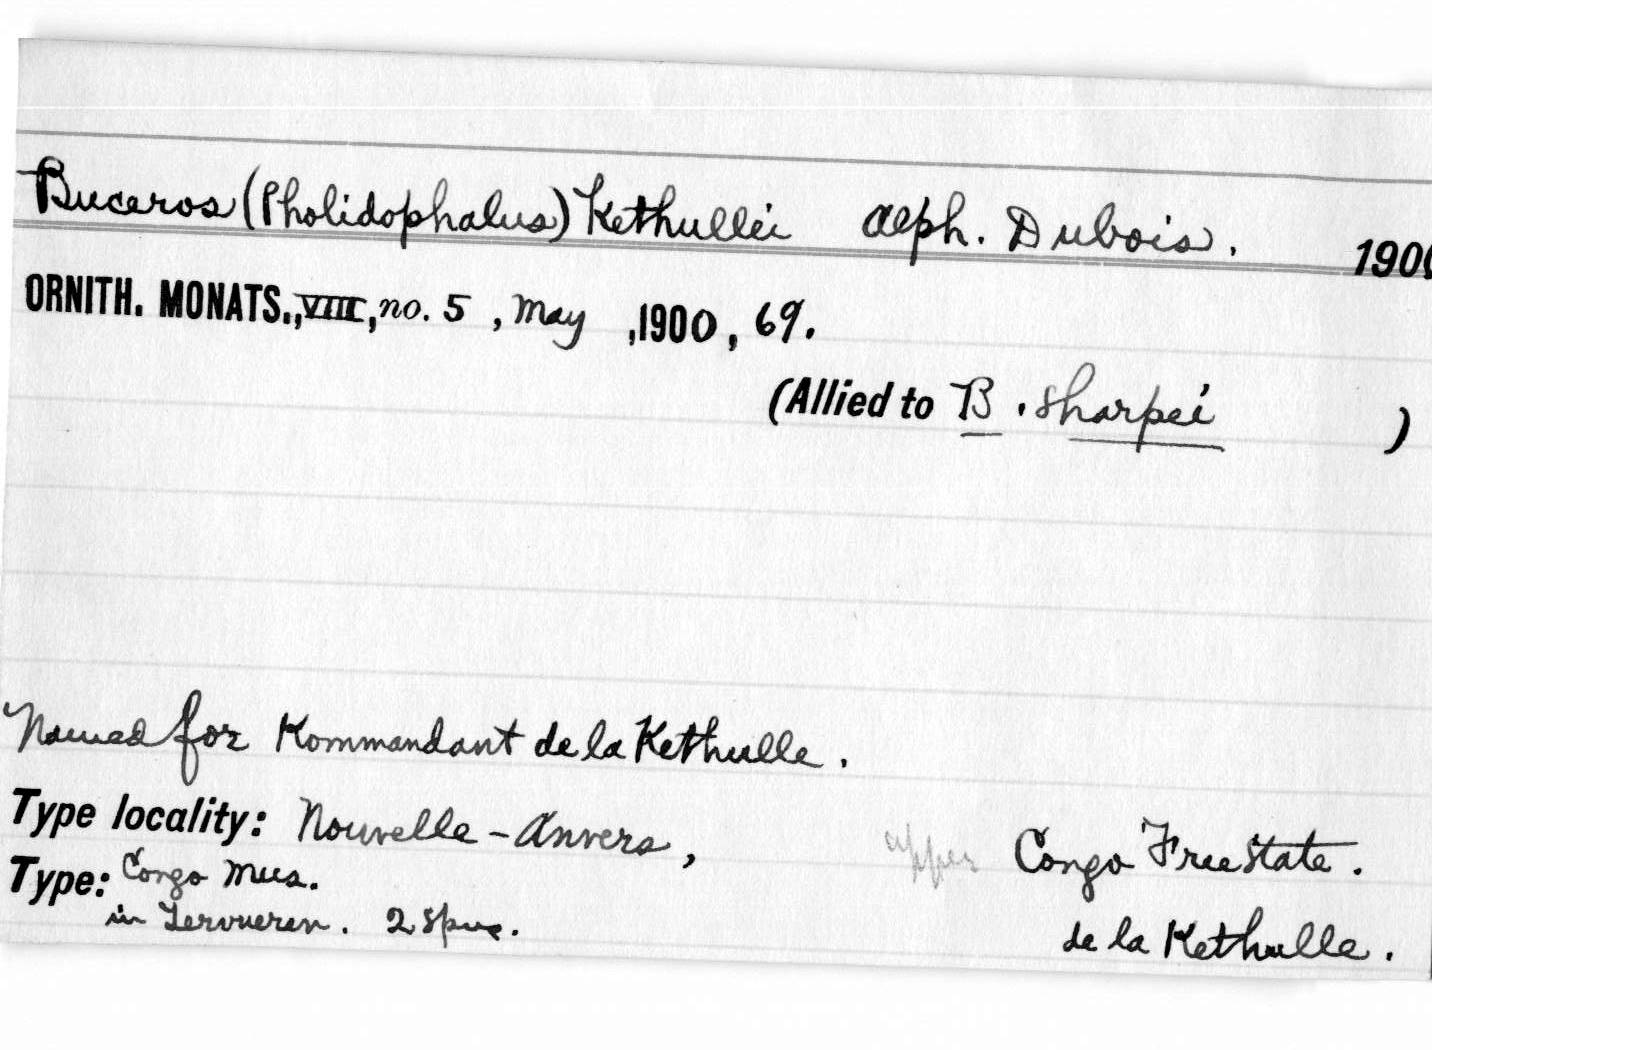 Buceros (Pholidophalus) Kethullei Alph. Dubois. 1900
ORNITH. MONATS., VIII, no. 5, May, 1900, 69.
(Allied to B. sharpei )
Named for Kommandant de la Kethulle.
Type locality: Nouvelle-Anvers, upper Congo Free State.
Type: Congo Mus.
in Tervueren. 2 spms. de la Kethulle.